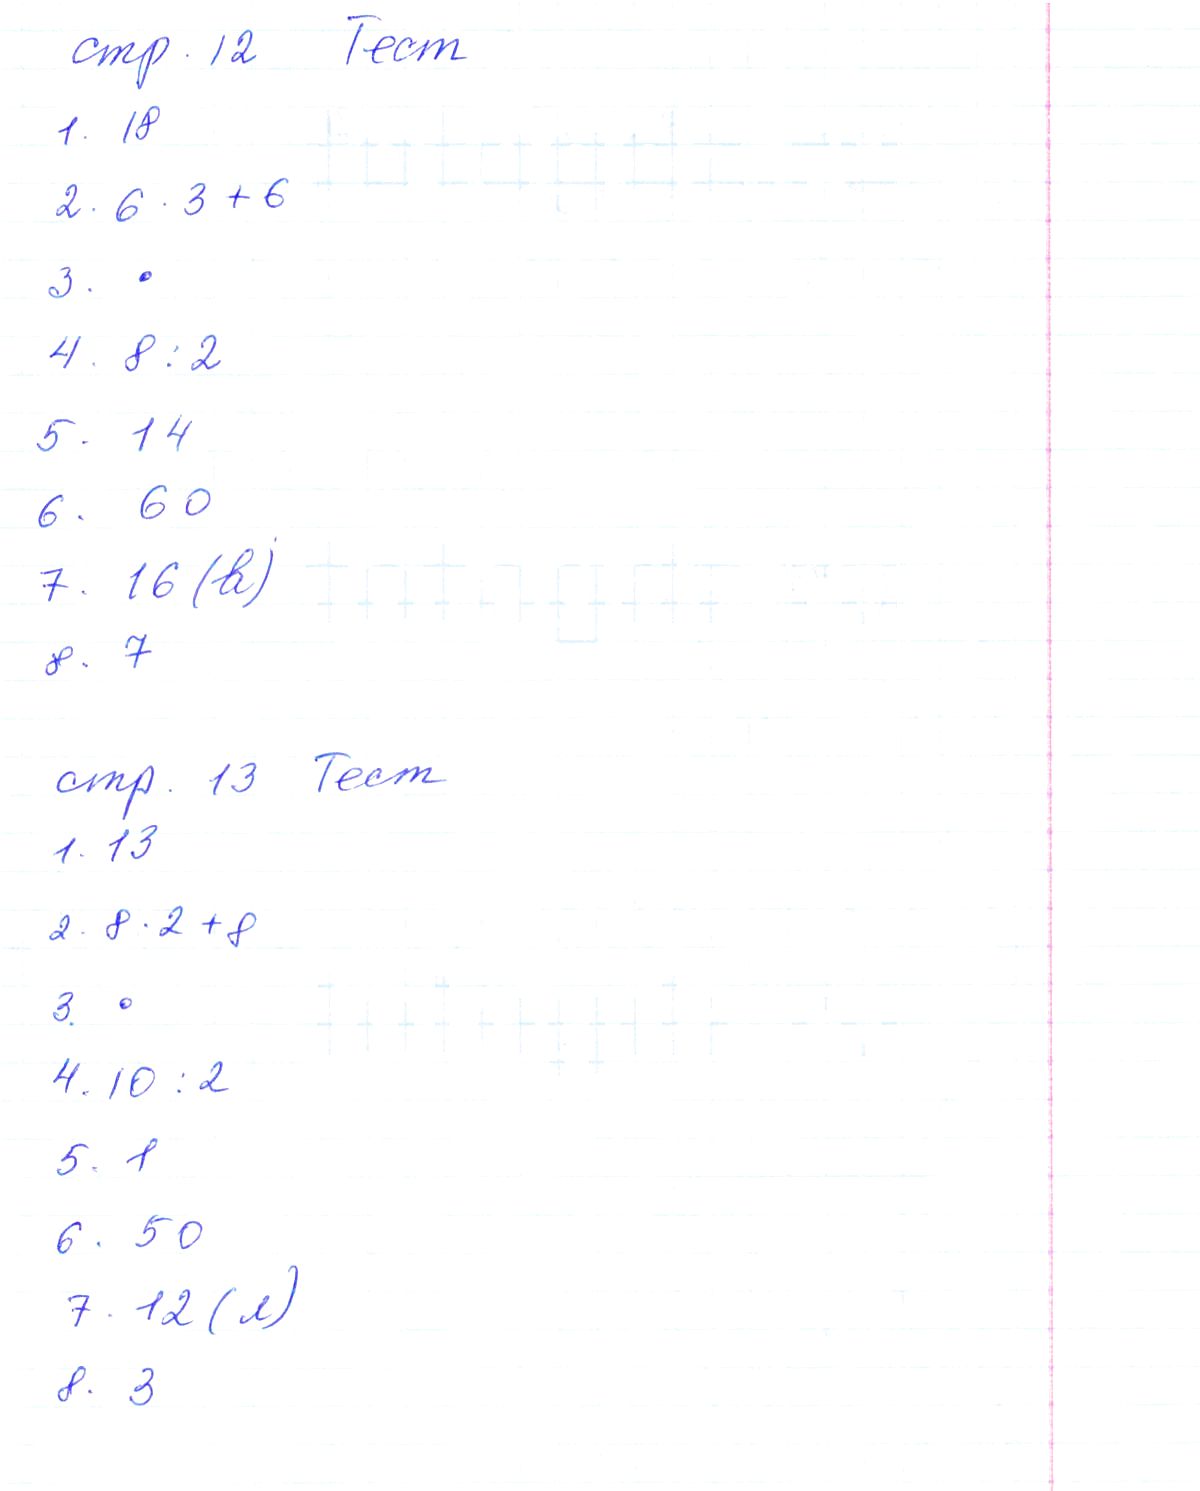 стр. 12 Тест
1. 18
2. 6 · 3 + 6
3. ·
4. 8 : 2
5. 14
6. 60
7. 16 (к)
8. 7
стр. 13 Тест
1. 13
2. 8 · 2 + 8
3. ·
4. 10 : 2
5. 1
6. 50
7. 12 (л)
8. 3